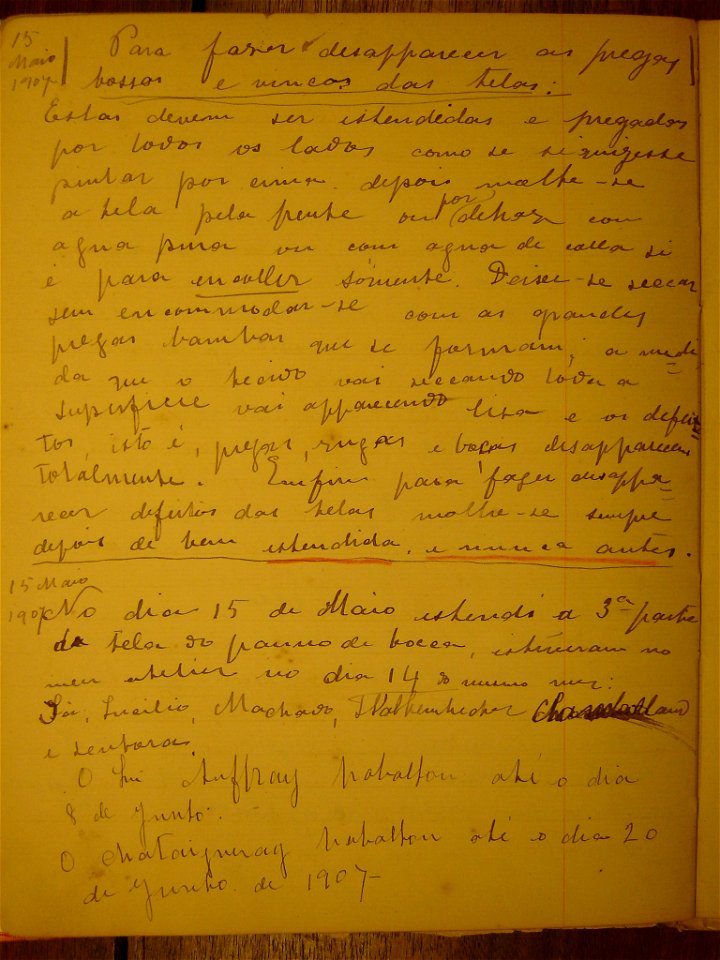 15
Maio
1907
Para fazer desapparecer as pregas
bossas e vincos das telas:
Estas devem ser estendidas e pregadas
por todos os lados como se si quizesse
pintar por cima. depois molhe-se
a tela pela frente ou por detraz com
agua pura ou com agua de colla si
é para encoller sómente. Deixe-se seccar
sem encommodar-se com as grandes
pregas bambas que se formam; a medi-
da que o tecido vai seccando toda a
superficie vai apparecendo lisa e os defei-
tos, isto é, pregas, rugas e boças desapparecem
totalmente. Emfim para fazer desappa-
recer defeitos das telas molhe-se sempre
depois de bem estendida, e nunca antes.
15 Maio
1907
No dia 15 de Maio estendi a 3ª parte
da tela do panno de bocca, estiveram no
meu atelier no dia 14 do mesmo mez:
Lucilio, Machado,
e senhoras
O Auffray trabalhou até o dia
8 de Junho.
O Chataigneray trabalhou até o dia 20
de Junho de 1907